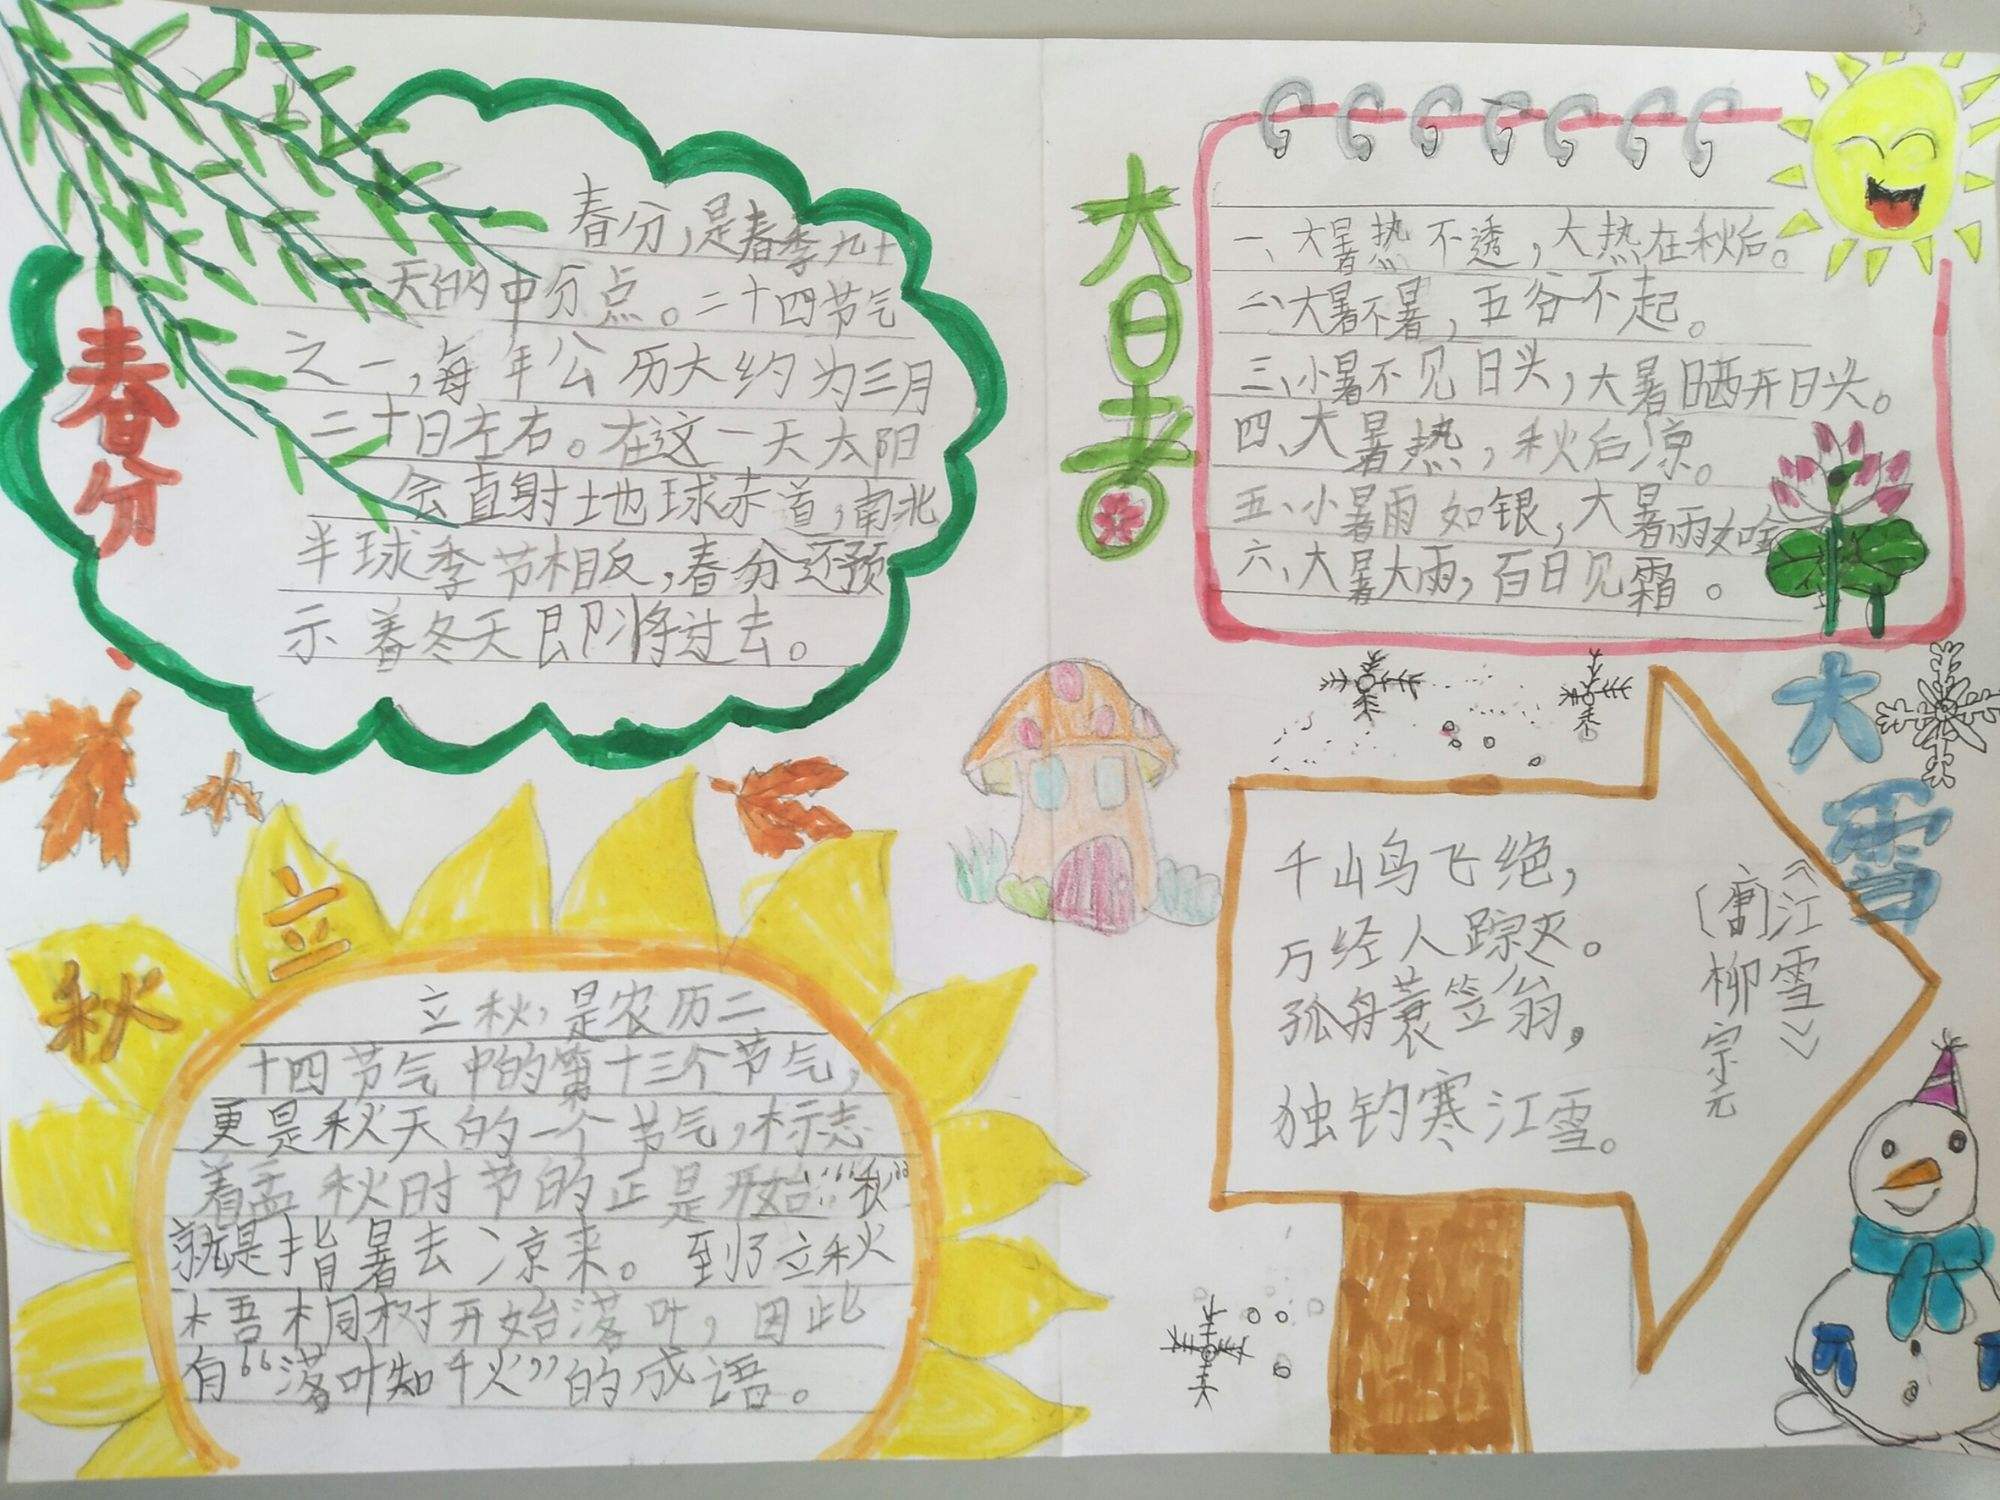 春分
春分，是春季九十
天的中分点。二十四节气
之一，每年公历大约为三月
二十日左右。在这一天太阳
会直射地球赤道，南北
半球季节相反，春分还预
示着冬天即将过去。
大暑
一、大暑热不透，大热在秋后。
二、大暑不暑，五谷不起。
三、小暑不见日头，大暑晒开日头。
四、大暑热，秋后凉。
五、小暑雨如银，大暑雨如
六、大暑大雨，百日见霜。
立秋
立秋，是农历二
十四节气中的第十三个节气，
更是秋天的一个节气，标志
着孟秋时节的正是开始：“秋”
就是指暑去凉来。到了立秋
梧桐树开始落叶，因此
有“落叶知秋”的成语。
大雪
《江雪》
〔唐〕柳宗元
千山鸟飞绝，
万经人踪灭。
孤舟蓑笠翁，
独钓寒江雪。